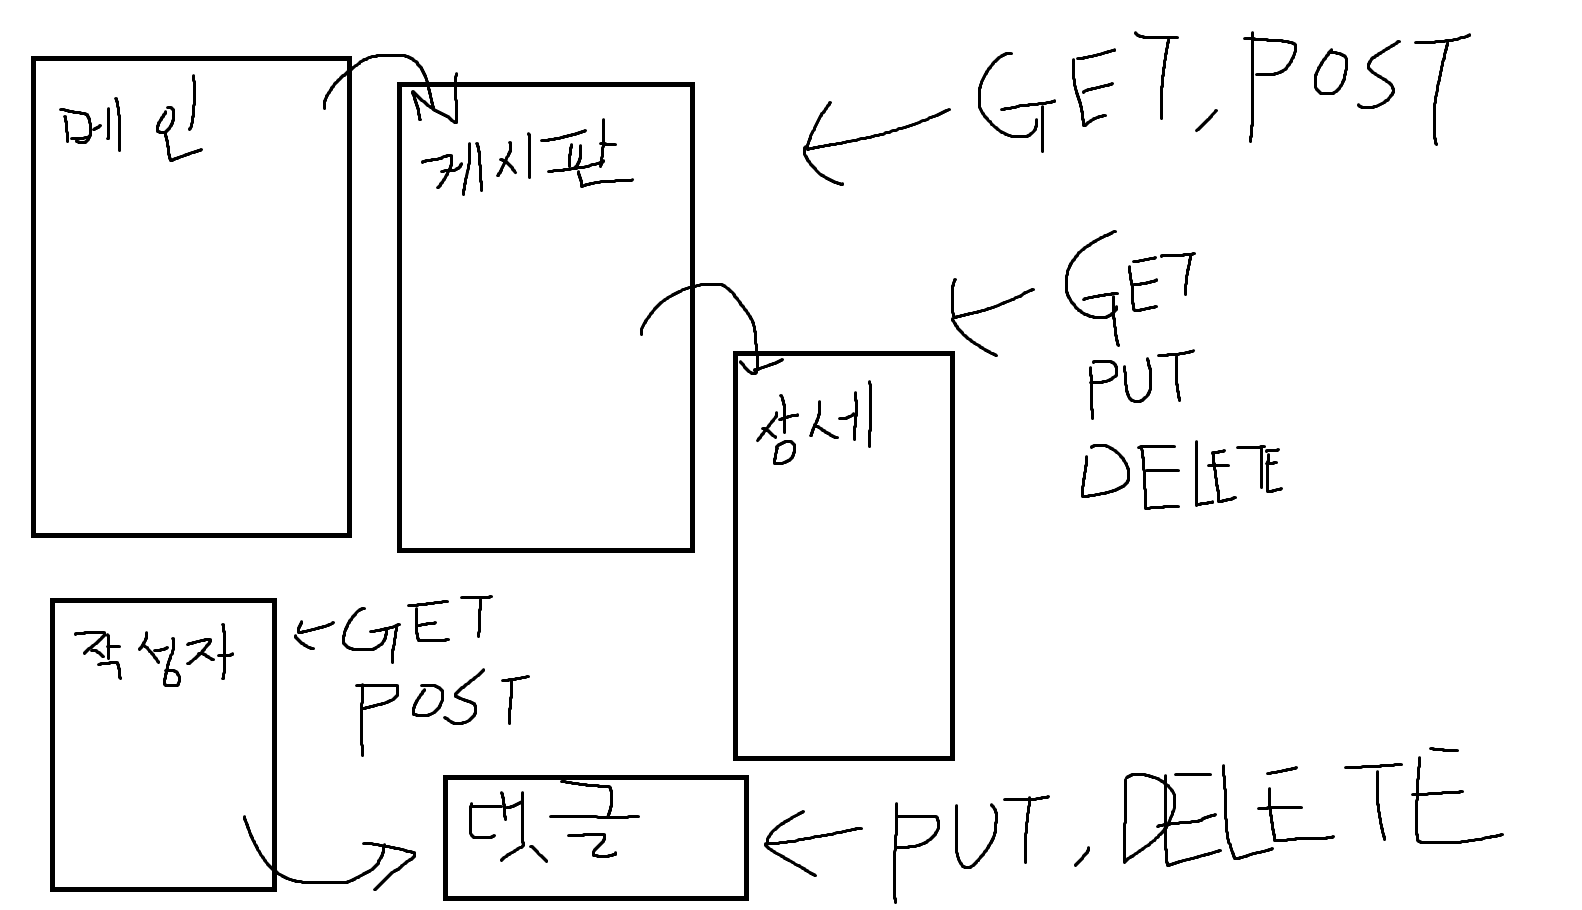 메인
게시판
GET, POST
상세
GET
PUT
DELETE
작성자
GET
POST
댓글
PUT, DELETE